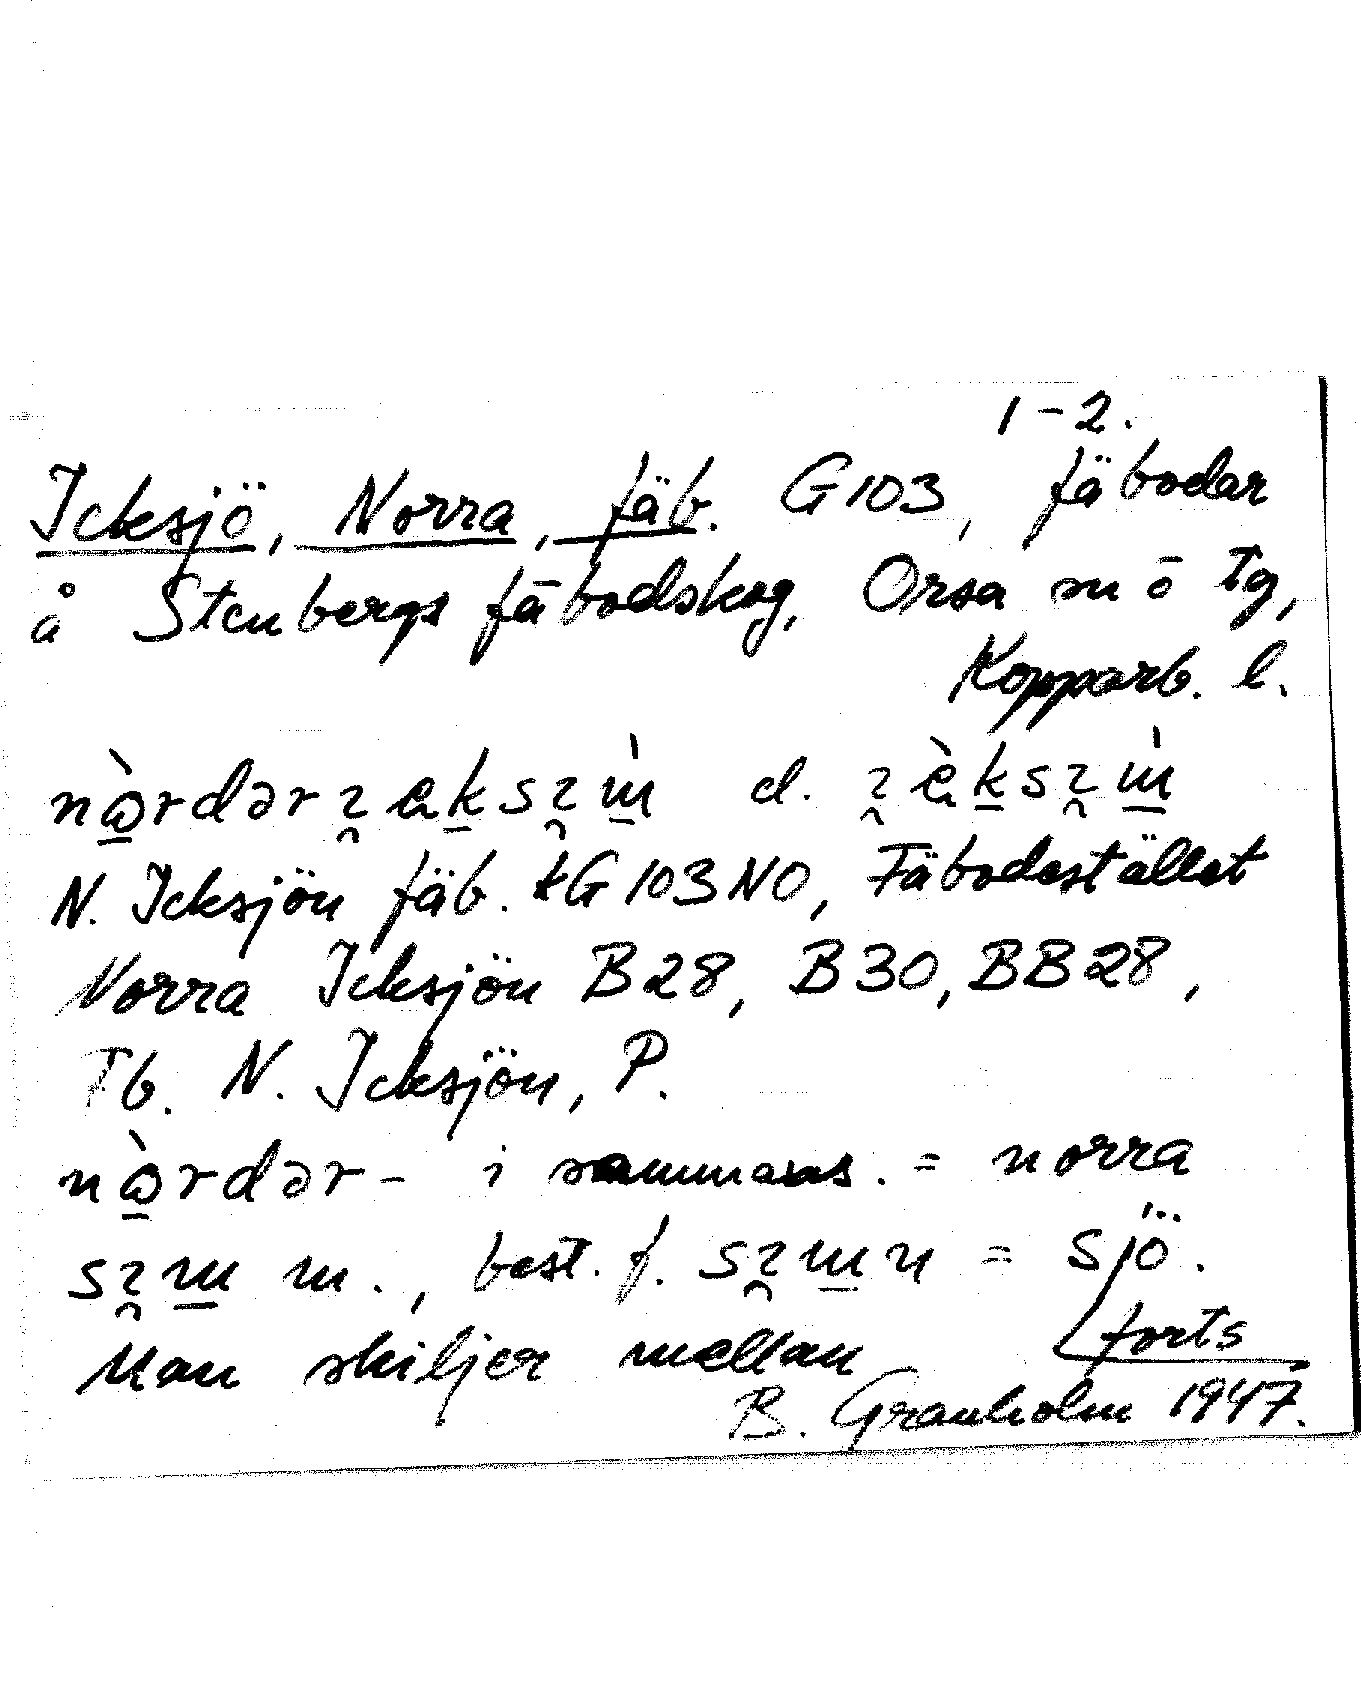 1-2.
Icksjö, Norra, fäb. G103, fäbodar
å Stenbergs fäbodskog, Orsa sn ö tg,
Kopparb. l.
d.
N. Icksjön fäb. tG 103 NO, Fäbodestället
Norra Icksjön B28, B30, BB28,
Fb. N. Icksjön, P.
i sammans. = norra
m., best. f. = sjö.
Man skiljer mellan forts
B. Granholm 1947.